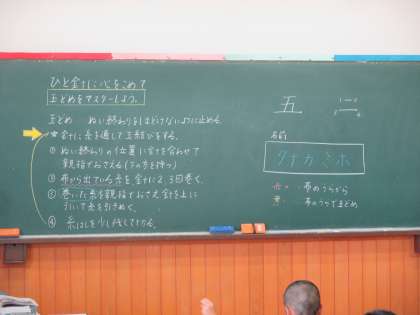 ひと針に心をこめて
玉どめをマスターしよう。
玉どめ ぬい終わりをほどけないように止める。
針に糸を通して玉結びをする。
① ぬい終わりの位置に針を合わせて
親指でおさえる
② 布から出ている糸を針に2、3回巻く。
③ 巻いた糸を親指でおさえ、針を上に
引いて糸を引きぬく。
④ 糸はしを少し残して切る。
五
名前
タナカミホ
布のうらから
布のうらで玉どめ